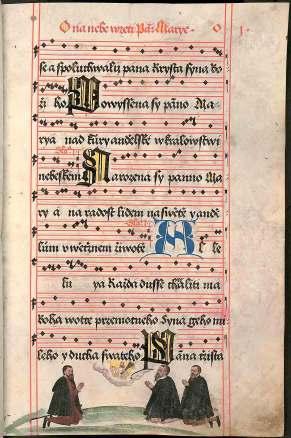 O na nebe wzeti Pañ: Marye. O j.
se a spolu chwalu pana Krysta syna bo
ži ho Powyssena sy pãno Ma
rya nad kury andělské w kralowstwi
nebeskem Narozena sy panno Ma
ry a na radost lidem na swětě y andě
lům w wečnem žiwotě A le
lu ya Každa dusse chwaliti ma
Boha wotce přemocneho Syna geho mi
leho y ducha swateho Pana Krista